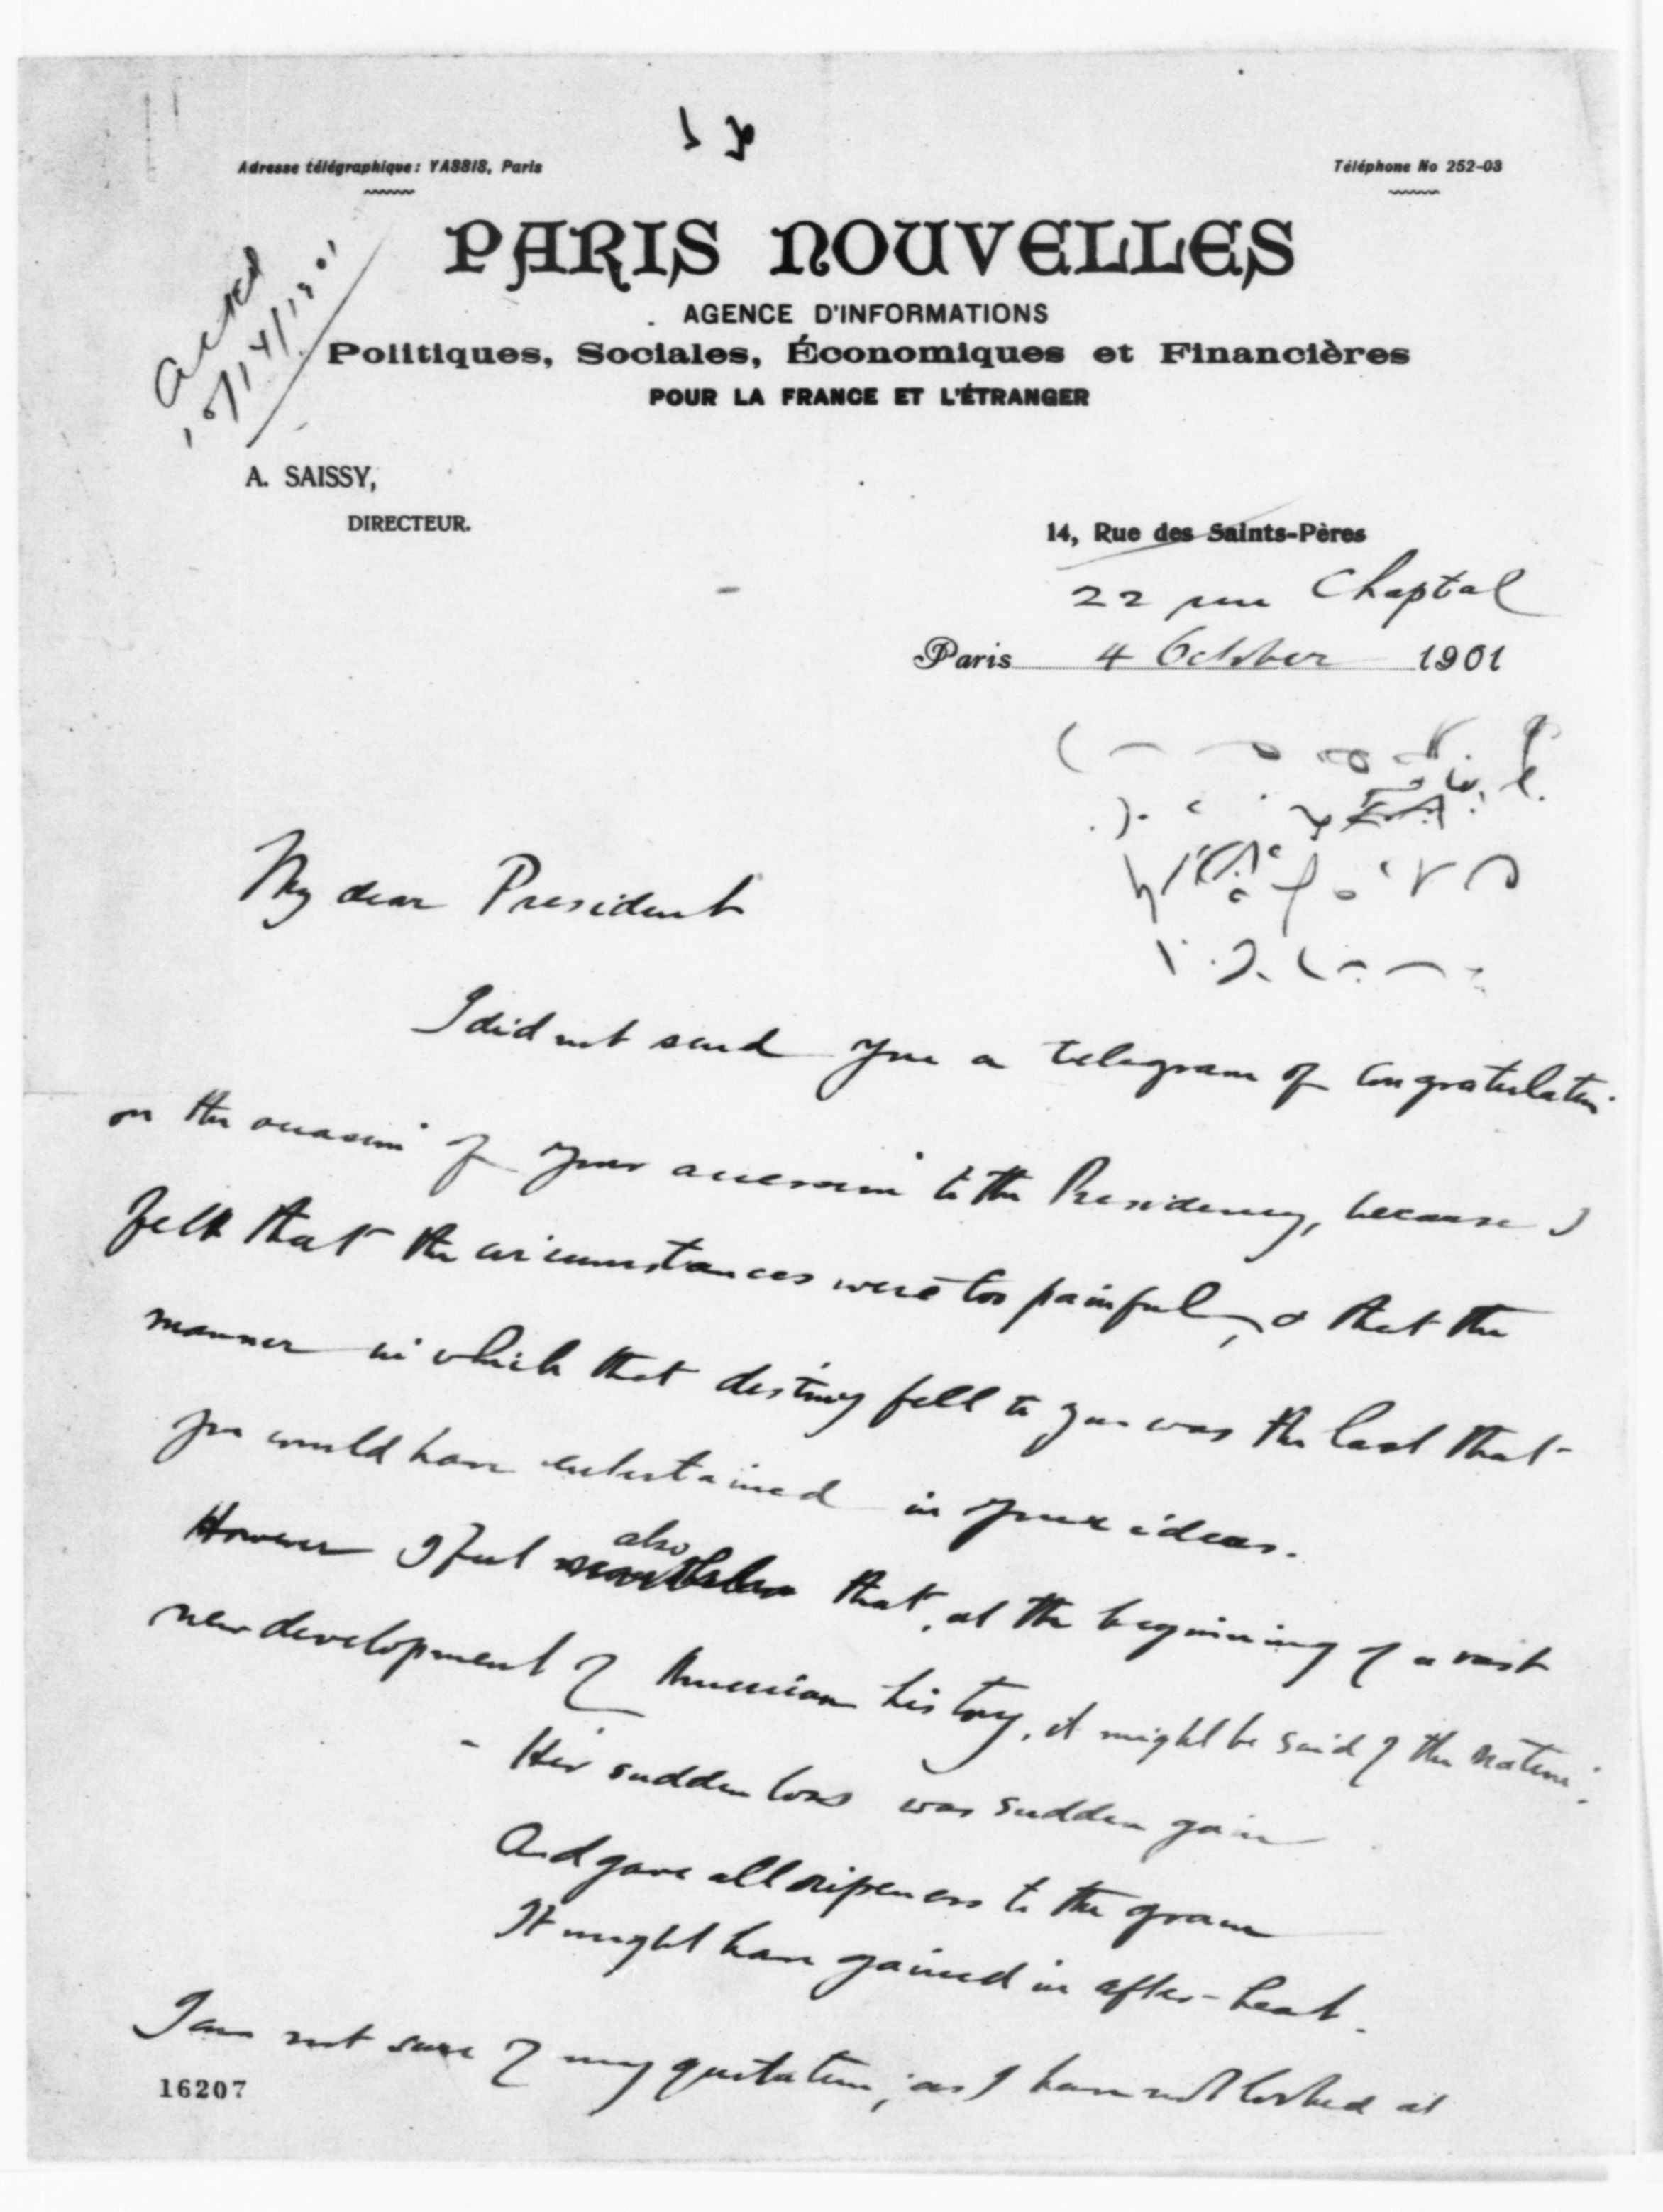 Adresse télégraphique: YASSIS, Paris
Téléphone No 252-03
PARIS NOUVELLES
AGENCE D'INFORMATIONS
Politiques, Sociales, Économiques et Financières
POUR LA FRANCE ET L'ÉTRANGER
Acked
10/14/1901
A. SAISSY,
DIRECTEUR.
14, Rue des Saints-Pères
22 rue Chaptal
Paris 4 October 1901
My dear President
I did not send you a telegram of congratulation
on the occasion of your accession to the Presidency, because I
felt that the circumstances were too painful, & that the
manner in which that destiny fell to you was the last that
you would have entertained in your ideas.
However I feel also that, at the beginning of a vast
new development of American history, it might be said of the nation:
- Her sudden loss was sudden gain
And gave all ripeness to the grain
It might have gained in after-heat.
I am not sure of my quotation, as I have not looked at
16207